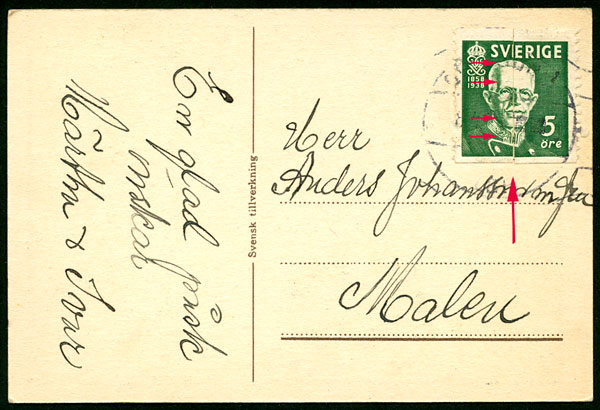 En glad påsk
önskar
Märtha & Ivar
Svensk tillverkning
SVERIGE
1858
1938
5
öre
Herr
Anders Johansson m fru
Malen